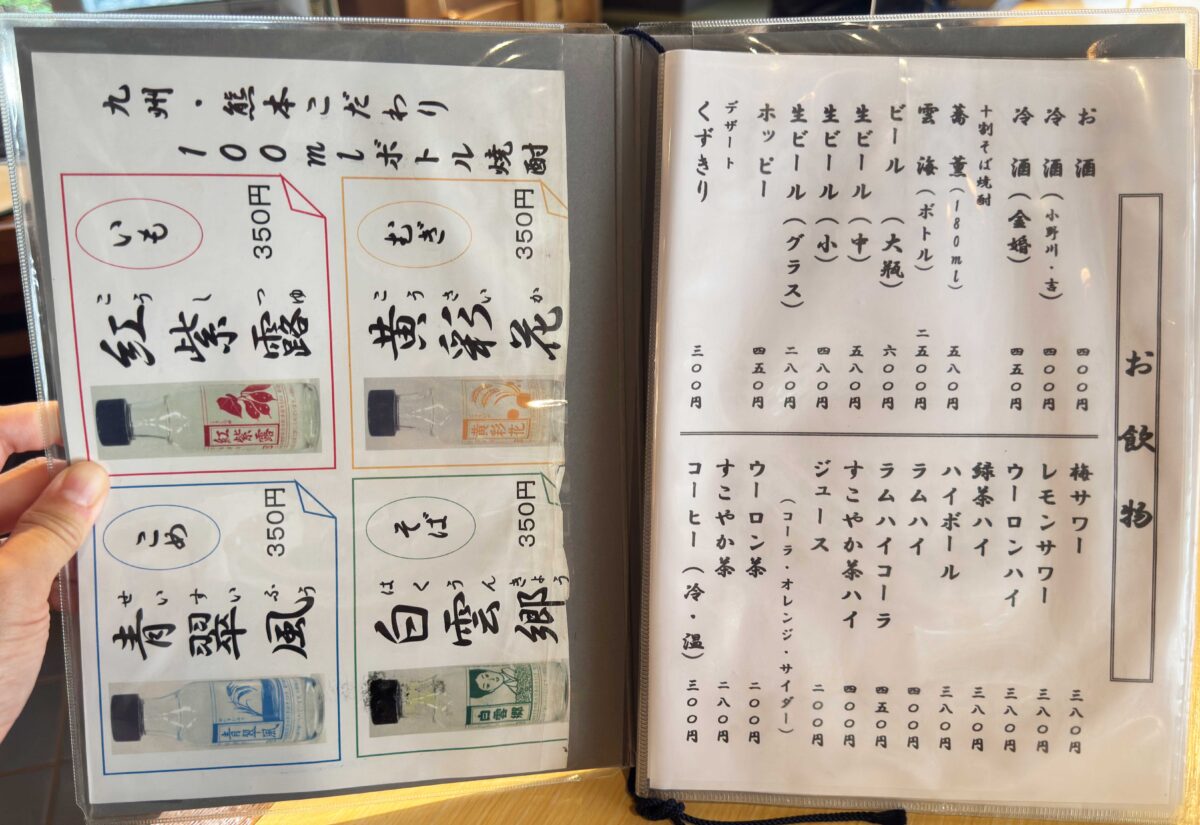 九州・熊本こだわり
100mlボトル焼酎
いも
350円
こう し つゆ
紅紫露
紅紫露
むぎ
350円
こう さい か
黄彩花
黄彩花
こめ
350円
せい すい ふう
青翠風
青翠風
そば
350円
はく うん きょう
白雲郷
白雲郷
お飲物
お酒 四〇〇円
冷酒(小野川・吉) 四〇〇円
冷酒(金婚) 四五〇円
十割そば焼酎
蕎薫(180ml) 五八〇円
雲海(ボトル) 二五〇〇円
ビール(大瓶) 六〇〇円
生ビール(中) 五八〇円
生ビール(小) 四八〇円
生ビール(グラス) 二八〇円
ホッピー 四五〇円
デザート
くずきり 三〇〇円
梅サワー 三八〇円
レモンサワー 三八〇円
ウーロンハイ 三八〇円
緑茶ハイ 三八〇円
ハイボール 三八〇円
ラムハイ 四〇〇円
ラムハイコーラ 四五〇円
すこやか茶ハイ 四〇〇円
ジュース 二〇〇円
(コーラ・オレンジ・サイダー)
ウーロン茶 二〇〇円
すこやか茶 二八〇円
コーヒー(冷・温) 三〇〇円